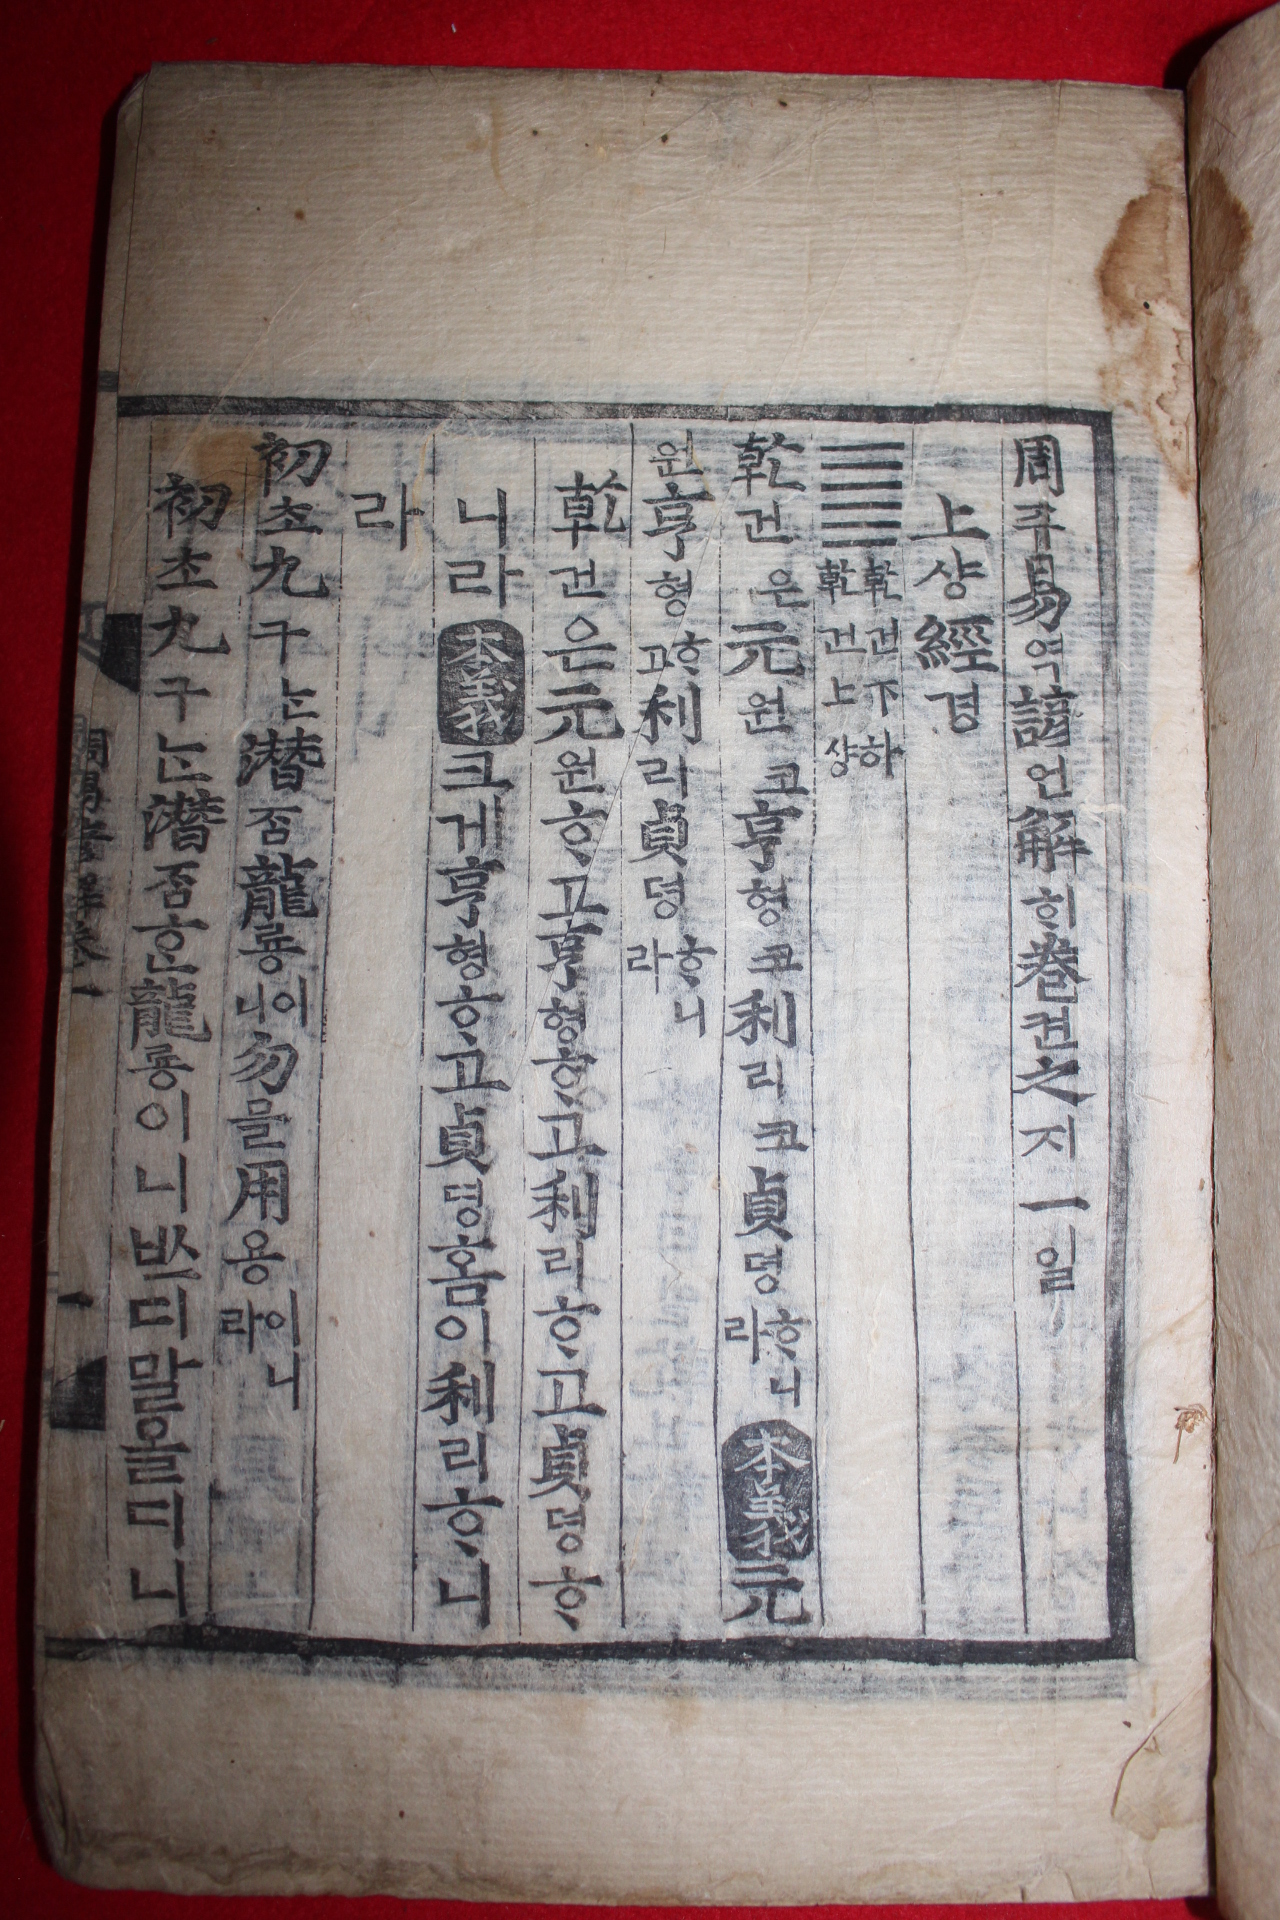 周쥬易역諺언解ᄒᆡ卷권之지一일
上샹經경
乾건下하
乾건上샹
乾건은元원코亨형코利리코貞뎡ᄒᆞ니라本義元
원亨형ᄒᆞ고利리貞뎡ᄒᆞ니라
乾건은元원ᄒᆞ고亨형ᄒᆞ고利리ᄒᆞ고貞뎡ᄒᆞ
니라本義크게亨형ᄒᆞ고貞뎡홈이利리ᄒᆞ니
라
初초九구ᄂᆞᆫ潛ᄌᆞᆷ龍룡이니勿믈用용이니라
初초九구ᄂᆞᆫ潛ᄌᆞᆷᄒᆞᆫ龍룡이니ᄡᅥ디말올디니
周易諺解卷一
一